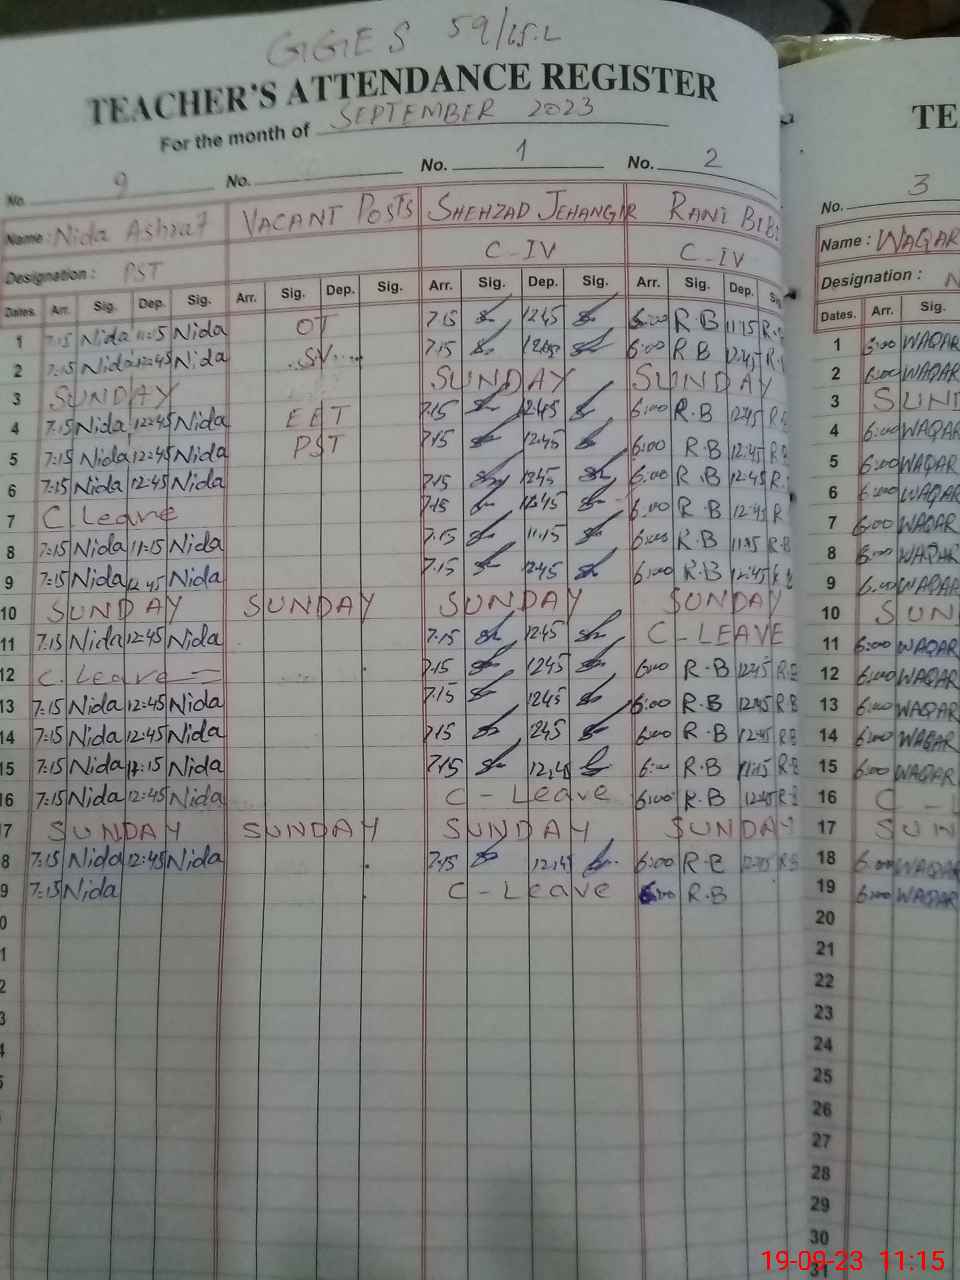 GGES 59/15.L
TEACHER'S ATTENDANCE REGISTER TE
For the month of SEPTEMBER 2023
No. 9 No. No. 1 No. 2 No. 3
Name : Nida Ashraf VACANT POSTS SHEHZAD JEHANGIR RANI BIBI Name : WAQAR
Designation : PST C-IV C-IV Designation :
Dates. Arr. Sig. Dep. Sig. Arr. Sig. Dep. Sig. Arr. Sig. Dep. Sig. Arr. Sig. Dep. Dates. Arr. Sig.
1 7:15 Nida 11:15 Nida OT 7.15 1245 6:00 R.B 11:15 R. 1 6:00 WAQAR
2 7:15 Nida 12:45 Nida SV.... 7.15 1245 6:00 R B 12:45 R. 2 6:00 WAQAR
3 SUNDAY SUNDAY SUNDAY 3 SUN
4 7:15 Nida 12:45 Nida EET 7.15 12.45 6:00 R.B 12:45 R.B 4 6:00 WAQAR
5 7:15 Nida 12:45 Nida PST 7.15 12.45 6:00 R.B 12:45 R.B 5 6:00 WAQAR
6 7:15 Nida 12:45 Nida 7.15 12.45 6:00 R.B 12:45 R. 6 6:00 WAQAR
7 C.Leave 7.15 12.45 6:00 R.B 12:45 R 7 6:00 WAQAR
8 7:15 Nida 11:15 Nida 7.15 11.15 6:00 R.B 11:15 R.B 8 6:00 WAQAR
9 7:15 Nida 12:45 Nida 7.15 12.45 6:00 R.B 12:45 9 6:00 WAQAR
10 SUNDAY SUNDAY SUNDAY SUNDAY 10 SUN
11 7:15 Nida 12:45 Nida 7.15 12.45 C-LEAVE 11 6:00 WAQAR
12 C.Leave 7.15 1245 6:00 R.B 12:45 R.B 12 6:00 WAQAR
13 7:15 Nida 12:45 Nida 7.15 1245 6:00 R.B 12:45 R.B 13 6:00 WAQAR
14 7:15 Nida 12:45 Nida 7.15 245 6:00 R.B 12:45 R.B 14 6:00 WAQAR
15 7:15 Nida 11:15 Nida 7.15 6:00 R.B 11:15 R.B 15 6:00 WAQAR
16 7:15 Nida 12:45 Nida C-Leave 6:00 R.B 12:45 R.B 16 C-L
7 SUNDAY SUNDAY SUNDAY SUNDAY 17 SUN
8 7:15 Nida 12:45 Nida 7.15 12.45 6:00 R.B 12:45 R.B 18 6:00 WAQAR
9 7:15 Nida C-Leave 6:00 R.B 19 6:00 WAQAR
0 20
1 21
2 22
3 23
4 24
5 25
26
27
28
29
30
31
19-09-23 11:15